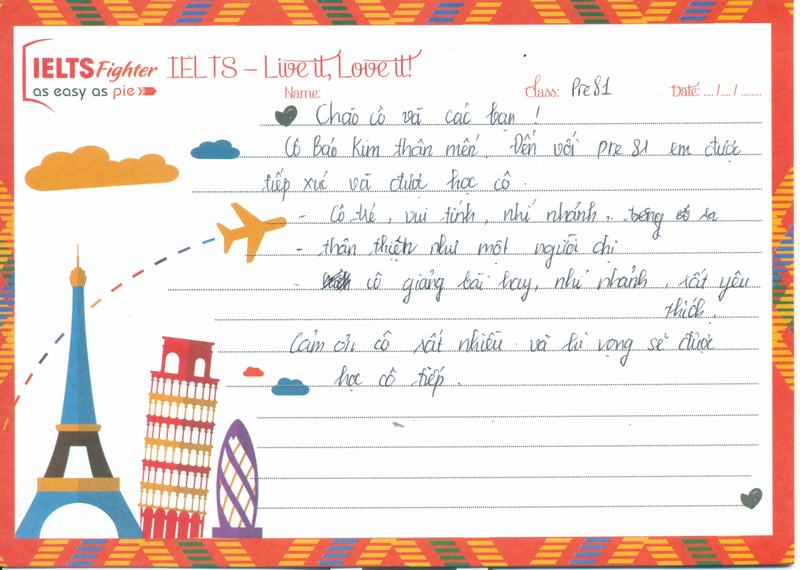 IELTS Fighter
as easy as pie
IELTS – Live it, Love it!
Name: Class: Pre 81 Date: .../.../.......
Chào cô và các bạn !
Cô Bảo Kim thân mến. Đến với Pre 81 em được
tiếp xúc và được học cô.
- Cô trẻ, vui tính, nhí nhảnh.
- thân thiện như một người chị
- cô giảng bài hay, nhí nhảnh, rất yêu
thích.
Cảm ơn cô rất nhiều và hi vọng sẽ được
học cô tiếp.